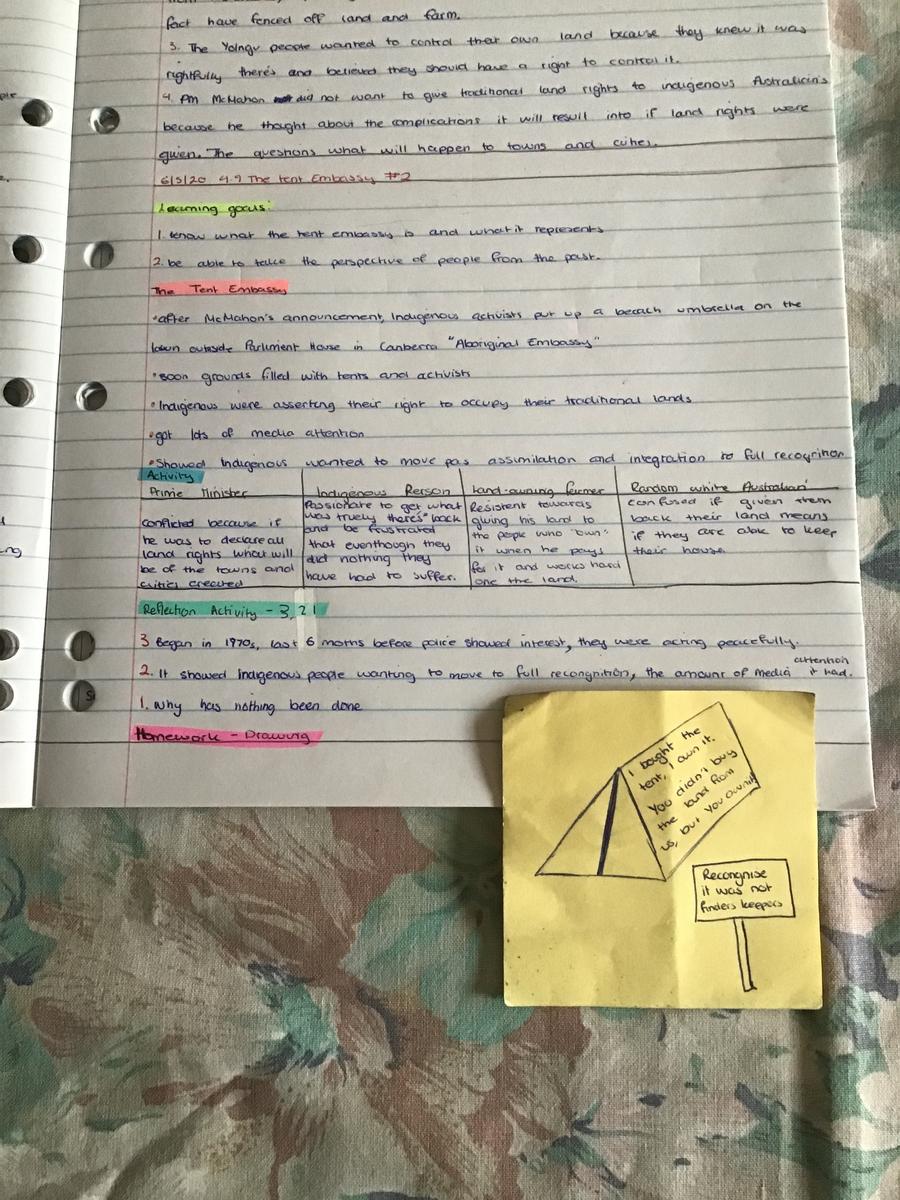 fact have fenced off land and farm.
3. The Yolngu people wanted to control their own land because they knew it was
rightfully there's and believed they should have a right to control it.
4. Pm McMahon did not want to give traditional land rights to indigenous Australian's
because he thought about the complications it will result into if land rights were
given. The questions what will happen to towns and cities.
6/5/20 9.9 The tent Embassy #2
Learning goals:
1. know what the tent embassy is and what it represents
2. be able to take the perspective of people from the past.
The Tent Embassy
•after McMahon's announcement, Indigenous activists put up a beach umbrella on the
lawn outside Parliment House in Canberra "Aboriginal Embassy"
•soon grounds filled with tents and activists
•Indigenous were asserting their right to occupy their traditional lands
•got lots of media attention
•Showed Indigenous wanted to move pas assimilation and integration to full recognition
Activity
Prime Minister
conflicted because if
he was to declare all
land rights what will
be of the towns and
cities created
Indigenous Person
Passionate to get what
was truely there's back
and be frustrated
that eventhough they
did nothing they
have had to suffer.
Land-owning farmer
Resistent towards
giving his land to
the people who "own"
it when he pays
for it and works hard
one the land.
Random white Australian
confused if given them
back their land means
if they are able to keep
their house
Reflection Activity - 3,2,1
3 Began in 1970s, last 6 moths before police showed interest, they were acting peacefully.
2. It showed indigenous people wanting to move to full recongnition, the amount of media attention it had.
1. Why has nothing been done
Homework - Drawing
I bought the
tent, I own it.
You didn't buy
the land from
us, but you own it
Recongnise
it was not
finders keepers